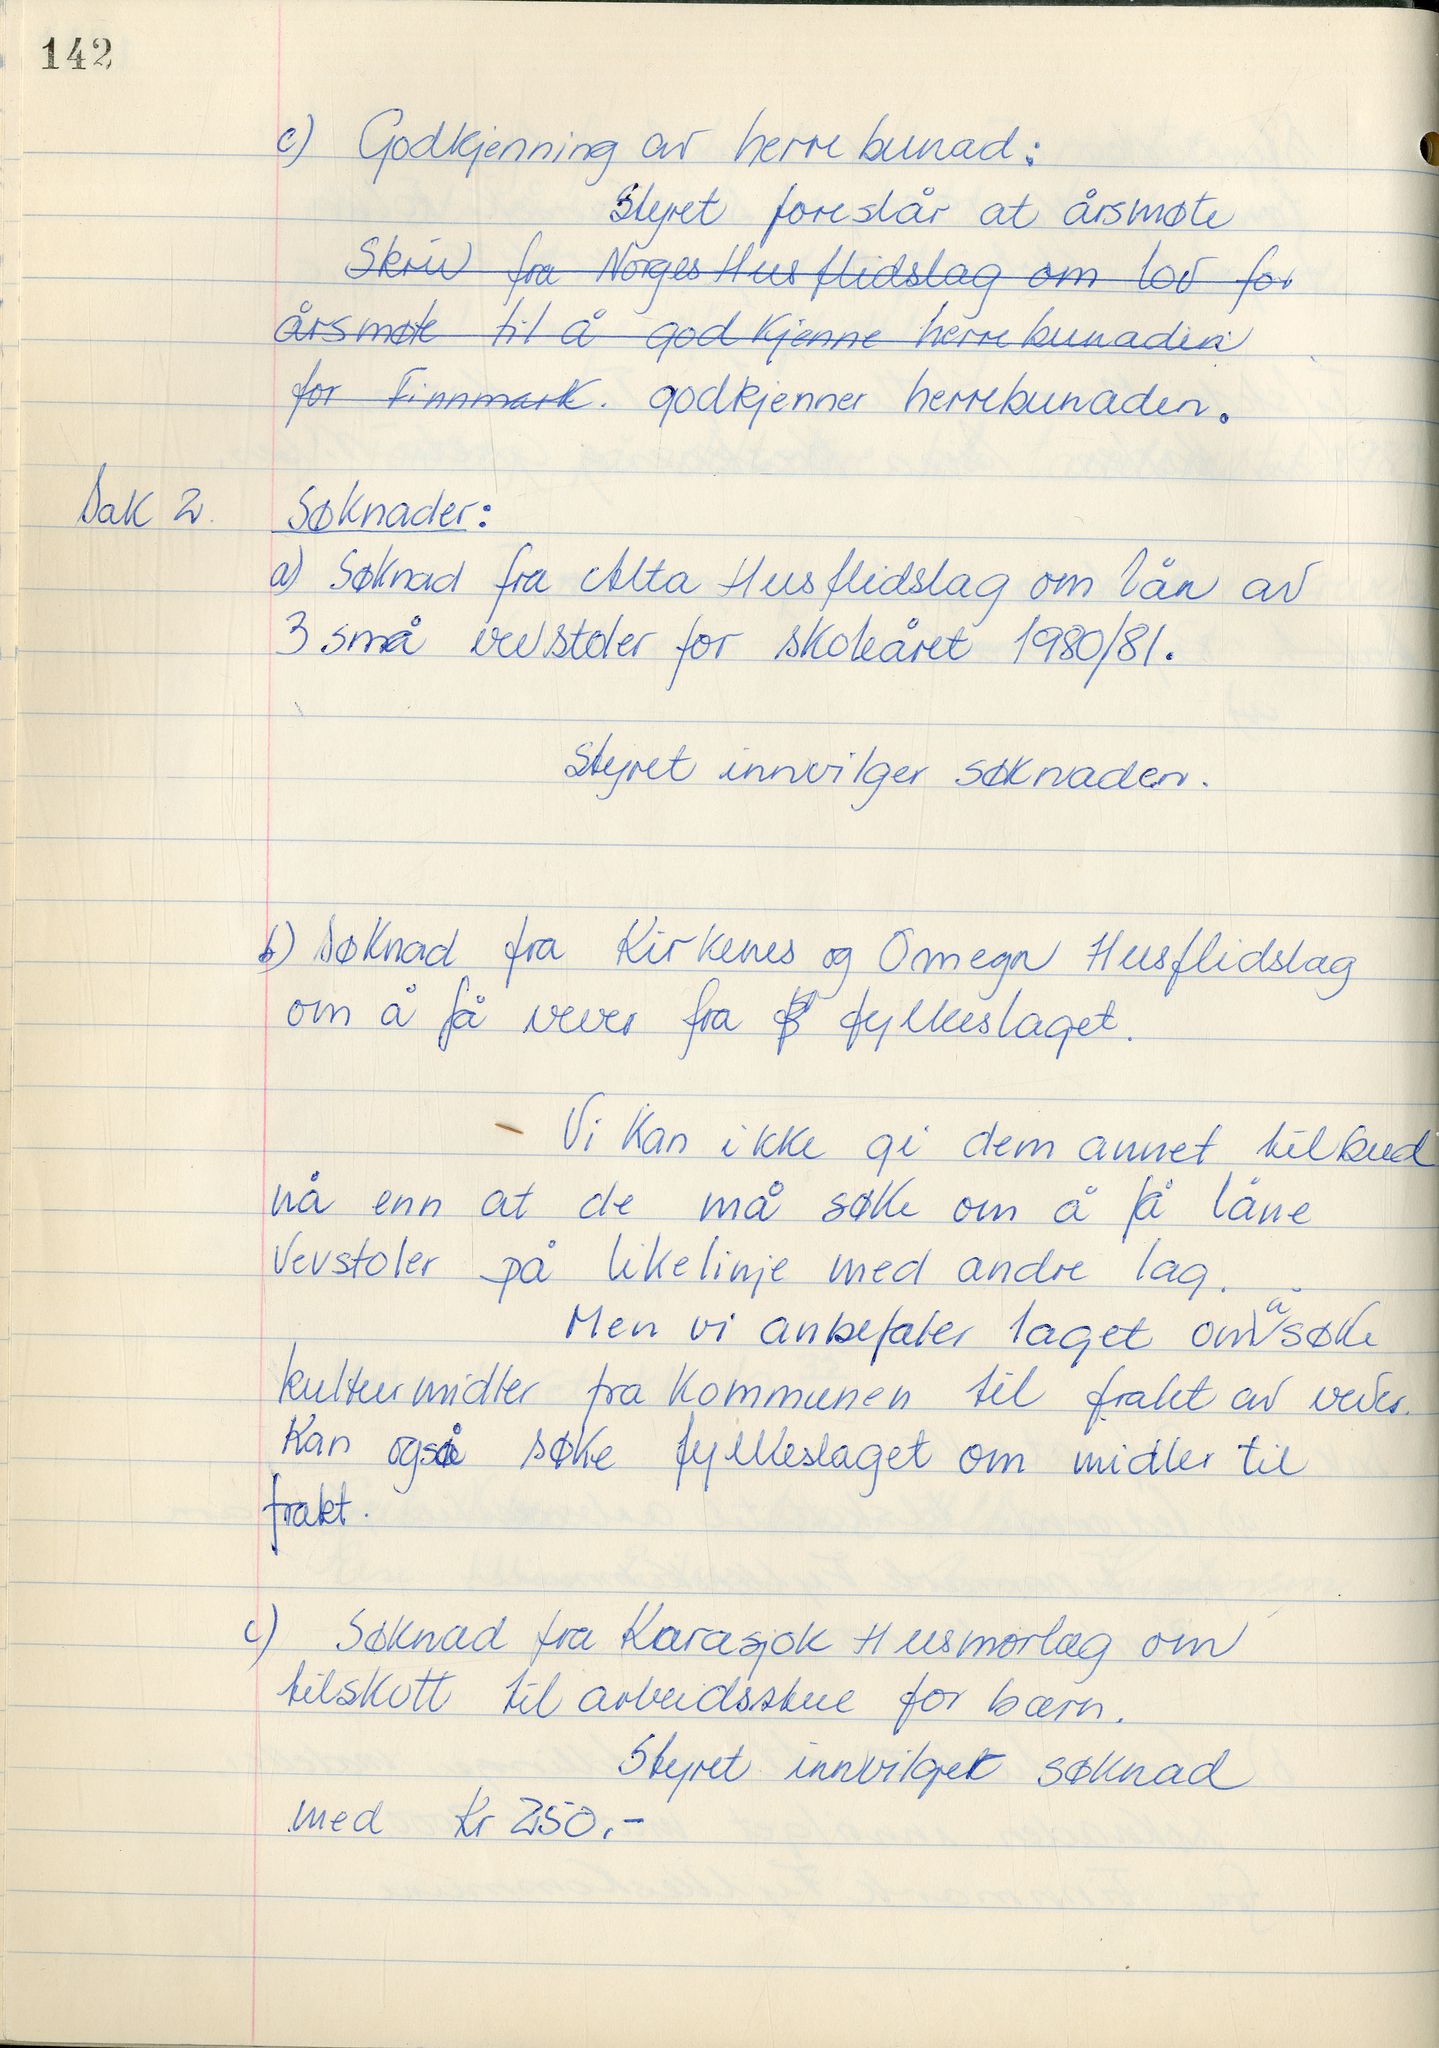 142
c) Godkjenning av herrebunad:
Styret foreslår at årsmøte
Skriv fra Norges Husflidslag om lov for
årsmøte til å godkjenne herrebunaden
for Finnmark. godkjenner herrebunaden.
Sak 2. Søknader:
a) Søknad fra Alta Husflidslag om lån av
3 små vevstoler for skoleåret 1980/81.
Styret innvilger søknaden.
b) Søknad fra Kirkenes og Omegn Husflidslag
om å få vever fra fylkeslaget.
Vi kan ikke gi dem annet tilbud
nå enn at de må søke om å få låne
vevstoler på likelinje med andre lag.
Men vi anbefaler laget om å søke
kulturmidler fra kommunen til frakt av vever.
Kan også søke fylkeslaget om midler til
frakt.
c) Søknad fra Karasjok Husmorlag om
tilskott til arbeidsstue for barn.
Styret innvilget søknad
med kr 250.-